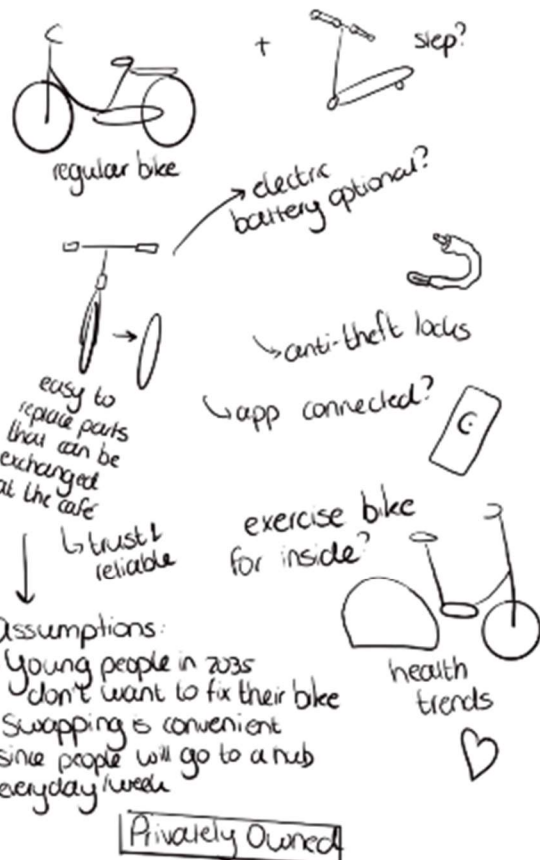 +
step?
regular bike
electric
battery optional?
anti-theft locks
app connected?
easy to
replace parts
that can be
exchanged
at the café
trust!
reliable
exercise bike
for inside?
health
trends
assumptions:
Young people in 2035
don't want to fix their bike
Swapping is convenient
since people will go to a hub
everyday/week
Privately Owned